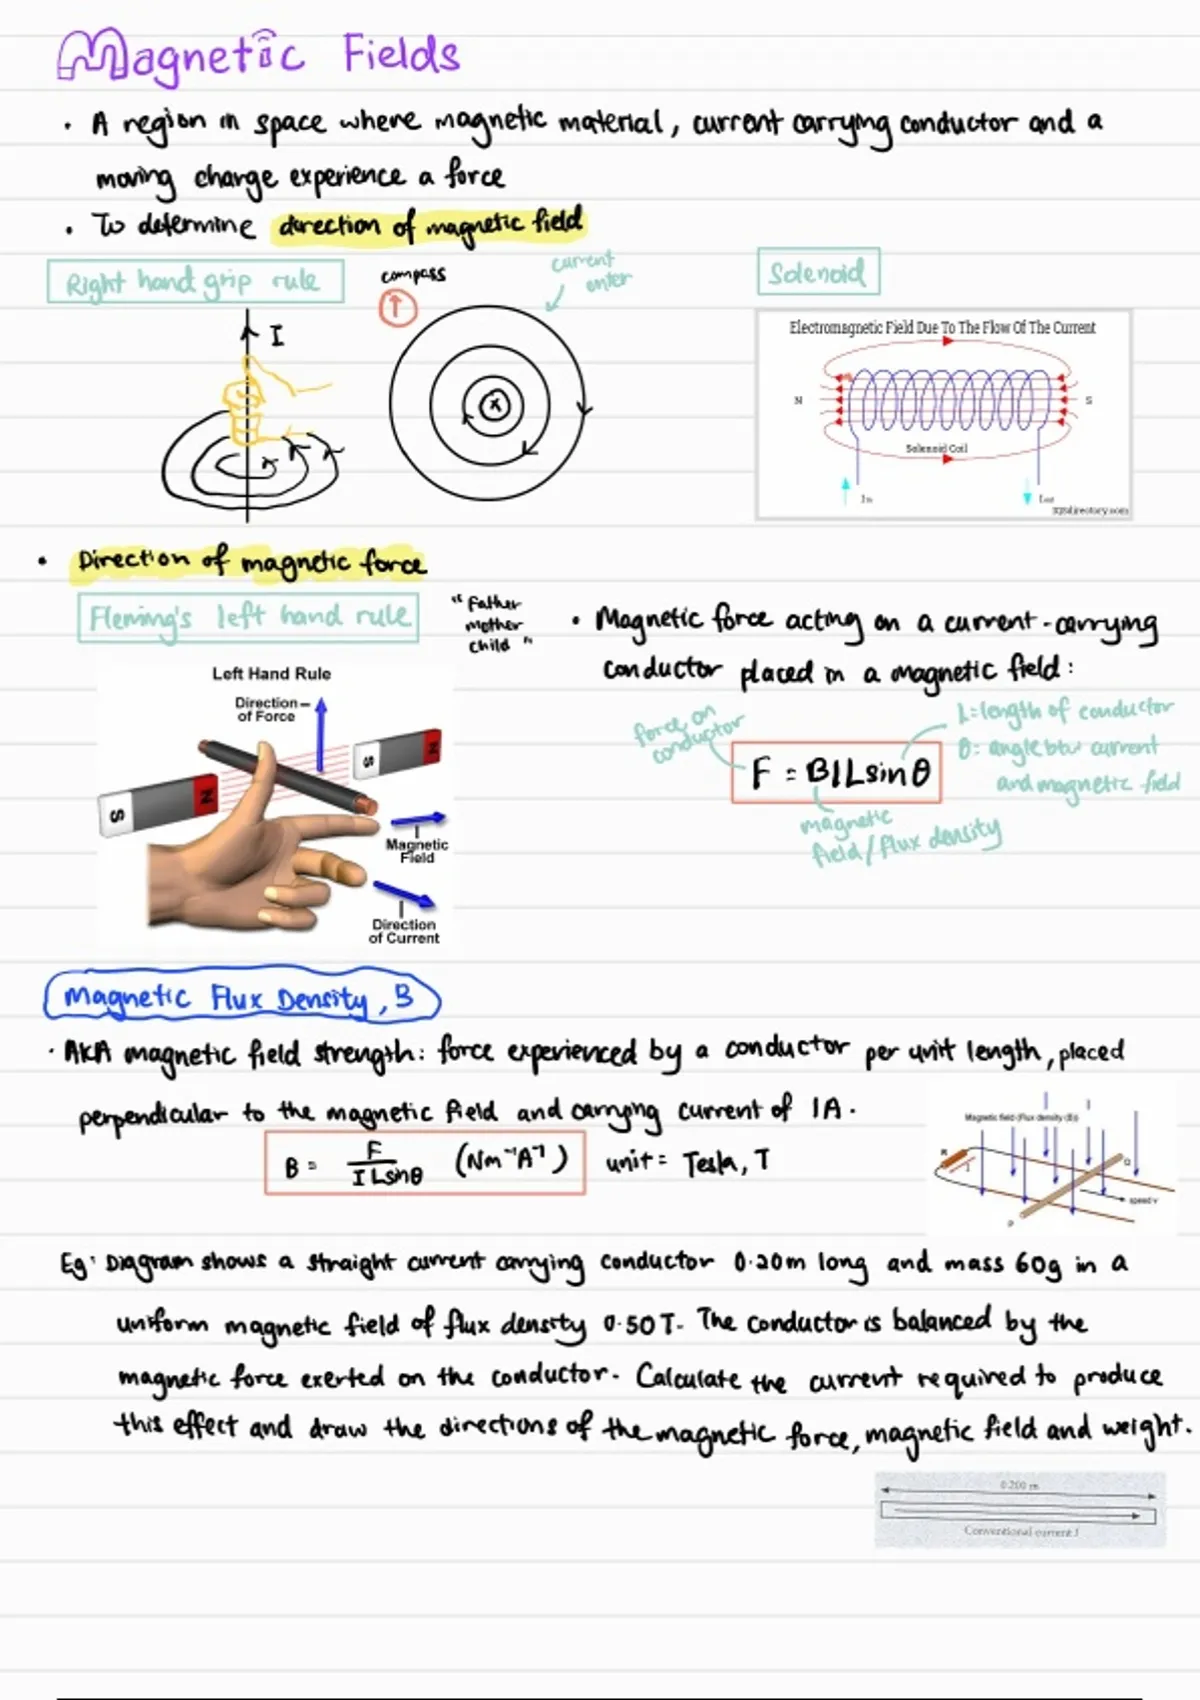 Magnetic Fields
• A region in space where magnetic material, current carrying conductor and a
moving charge experience a force
• To determine direction of magnetic field
Right hand grip rule
compass
current
enter
Solenoid
I
Electromagnetic Field Due To The Flow Of The Current
N
S
Solenoid Coil
In
Iout
IQSdirectory.com
• Direction of magnetic force
Fleming's left hand rule
"Father
mother
child"
Left Hand Rule
Direction
of Force
S
N
S
N
Magnetic
Field
Direction
of Current
• Magnetic force acting on a current-carrying
conductor placed in a magnetic field:
force on
conductor
L=length of conductor
θ: angle btw current
and magnetic field
F = BILsinθ
magnetic
field/flux density
Magnetic Flux Density, B
• AKA magnetic field strength: force experienced by a conductor per unit length, placed
perpendicular to the magnetic field and carrying current of 1A.
B = F / ILsinθ (Nm⁻¹A⁻¹) unit = Tesla, T
Magnetic field (Flux density (B))
R
I
Q
speed v
P
Eg: Diagram shows a straight current carrying conductor 0.20m long and mass 60g in a
uniform magnetic field of flux density 0.50T. The conductor is balanced by the
magnetic force exerted on the conductor. Calculate the current required to produce
this effect and draw the directions of the magnetic force, magnetic field and weight.
0.200 m
Conventional current I